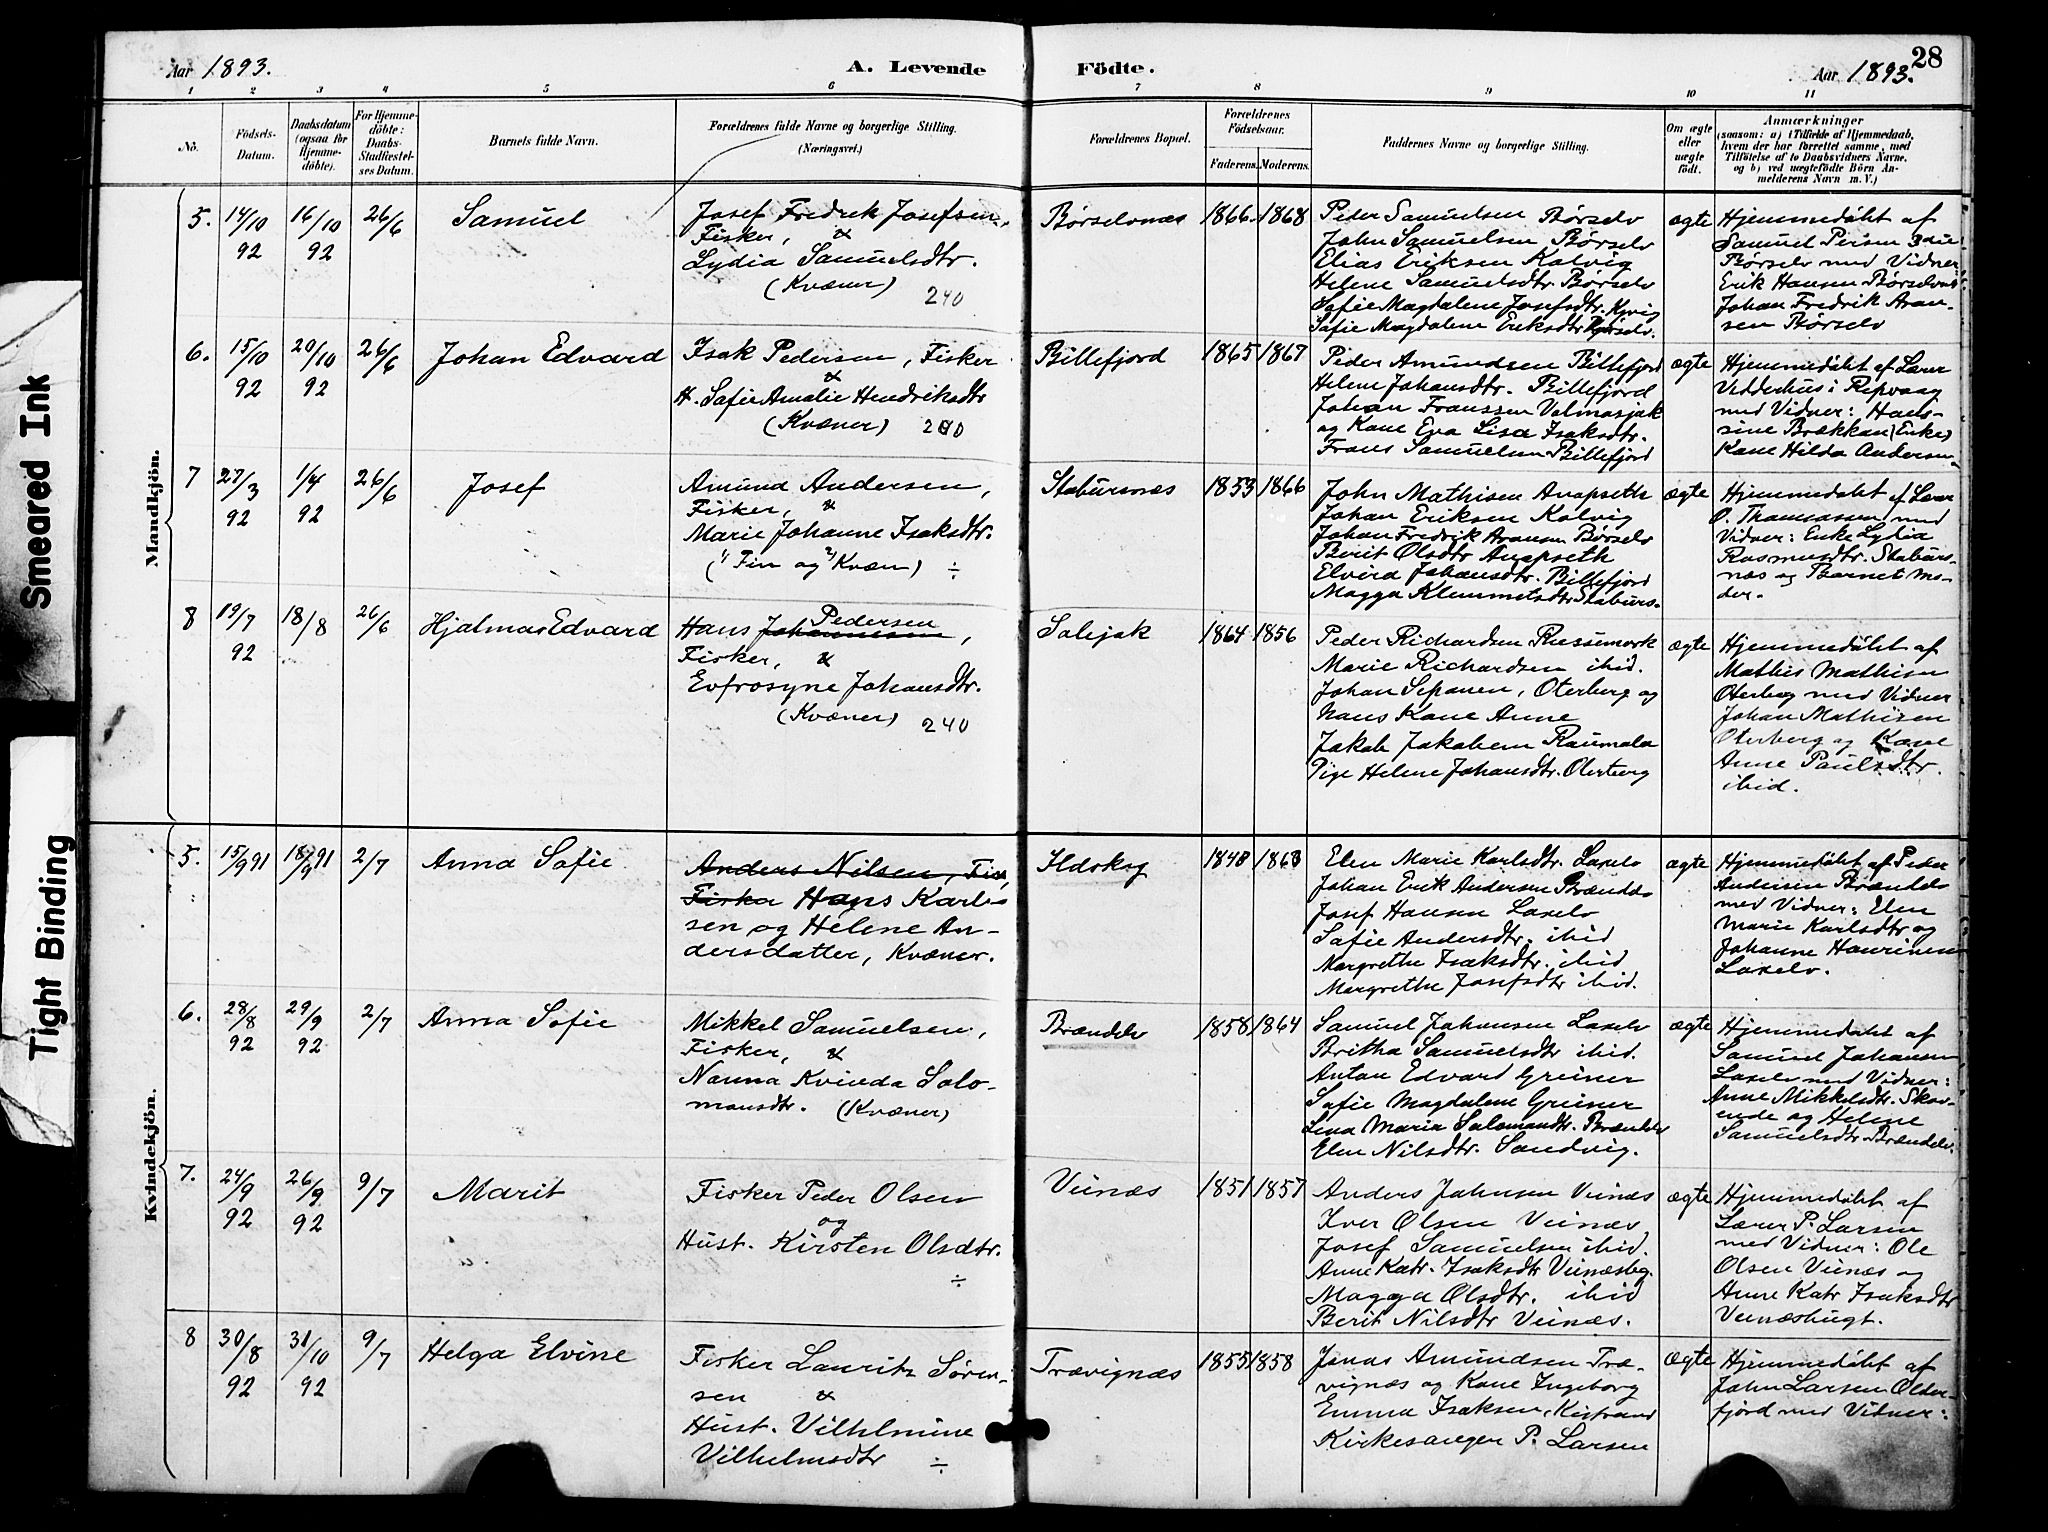 Aar 1893.
A. Levende Födte.
Aar 1893.
28
1 2 3 4 5 6 7 8 9 10 11
No.
Födsels-
Datum.
Daabsdatum
(ogsaa for
Hjemme-
döbte).
For Hjemme-
döbte:
Daabs-
Stadfæstel-
ses Datum.
Barnets fulde Navn.
Forældrenes fulde Navne og borgerlige Stilling.
(Næringsvei.)
Forældrenes Bopæl.
Forældrenes
Födselsaar.
Faderens. Moderens.
Faddernes Navne og borgerlige Stilling.
Om ægte
eller
uægte
födt.
Anmærkninger
(saasom: a) i Tilfælde af Hjemmedaab,
hvem der har forrettet samme, med
Tilföielse af to Daabsvidners Navne,
og b) ved uægtefödte Börn An-
melderens Navn m. V.)
Mandkjön.
5. 14/10 92
16/10 92
26/6
Samuel
Josef Fredrik Josefsen,
Fisker, &
Lydia Samuelsdtr.
(Kvæner) 240
Børselvnæs
1866 1868
Peder Samuelsen Børselv
John Samuelsen Børselv
Elias Eriksen Kolvig
Helene Samuelsdtr. Børselv
Sofie Magdalene Josefsdtr.
Sofie Magdalene Eriksdtr.
ægte
Hjemmedøbt af
Samuel Persen
Børselv med Vidner:
Erik Hansen Børselvnæs
Johan Fredrik Aron-
sen Børselv
6. 15/10 92
20/10 92
26/6
Johan Edvard
Isak Pedersen, Fisker
&
H. Sofie Amalie Hendriksdtr
(Kvæner)
Billefjord
1865 1867
Peder Amundsen Billefjord
Helene Johansdtr. Billefjord
Johan Franssen Valmasjok
og Kone Eva Lisa Isaksdtr.
Frans Samuelsen Billefjord
ægte
Hjemmedøbt af Lærer
Vedderhus i Repvaag
med Vidner: Han-
sine Brækkan (Enke)
Kone Hilda Andersen
7 27/3 92
1/4 92
26/6
Josef
Amund Andersen,
Fisker, &
Marie Johanne Isaksdtr.
(1) Fin og 2) Kvæn) ÷
Stabursnæs
1853 1866
John Mathisen Anopseth
Johan Eriksen Kolvig
Johan Fredrik Aronsen Børselv
Berit Olsdtr Anopseth
Elvira Johansdtr. Billefjord
Magga Klemmetsdtr. Staburs-
ægte
Hjemmedøbt af Lærer
O. Thomassen med
Vidner: Enke Lydia
Rasmusdtr. Staburs-
næs og Barnets Mo-
der.
8 19/7 92
18/8
26/6
Hjalmar Edvard
Pedersen
Hans Johannesen,
Fisker, &
Evfrosyne Johansdtr.
(Kvæner) 240
Solejok
1864 1856
Peder Richardsen Russemark
Marie Richardsen ibid.
Johan Seppanen, Oterberg og
hans Kone Anne
Jakob Jakobsen Raumala
Pige Helene Johansdtr. Oterberg
ægte
Hjemmedøbt af
Mathis Mathisen
Oterberg med Vidner
Johan Mathisen
Oterberg og Kone
Anne Paulsdtr.
ibid.
Kvindekjön.
5. 15/9 91
18/9 91
2/7
Anna Sofie
Anders Nilsen, Fis,
Fisker Hans Karl-
sen og Helene An-
dersdatter, Kvæner.
Ildskog
1848 1868
Elen Marie Karlsdtr. Laxelv
Johan Erik Andersen Brændelv
Josef Hansen Laxelv
Sofie Andersdtr. ibid
Margrethe Isaksdtr. ibid
Margrethe Josefsdtr ibid.
ægte
Hjemmedøbt af Peder
Andersen Brændelv
med Vidner: Elen
Marie Karlsdtr og
Johanne Hourinen
Laxelv.
6. 28/8 92
29/9 92
2/7
Anna Sofie
Mikkel Samuelsen,
Fisker, &
Nanna Kvivda Salo-
monsdtr. (Kvæner)
Brændelv
1858 1864
Samuel Johansen Laxelv
Britha Samuelsdtr ibid.
Anton Edvard Greiner
Sofie Magdalene Greiner
Lena Maria Salomondtr. Brændelv
Elen Nilsdtr. Sandvig.
ægte
Hjemmedøbt af
Samuel Johansen
Laxelv med Vidner:
Anne Mikkelsdtr. Skov-
ende og Helene
Samuelsdtr. Brændelv.
7. 24/9 92
26/9 92
9/7
Marit
Fisker Peder Olsen
og
Hust. Kirsten Olsdtr.
÷
Veinæs
1851 1857
Anders Johnsen Veinæs
Iver Olsen Veinæs
Josef Samuelsen ibid.
Anne Katr. Isaksdtr Veinæsbg.
Magga Olsdtr. ibid
Berit Nilsdtr Veinæs.
ægte
Hjemmedøbt af
Lærer P. Larsen
med Vidner: Ole
Olsen Veinæs og
Anne Katr Isaksdtr
Veinæsbugt.
8 30/8 92
31/10 92
9/7
Helga Elvine
Fisker Lauritz Sören-
sen &
Hust. Vilhelmine
Vilhelmsdtr ÷
Trævignæs
1855 1858
Jonas Amundsen Træ-
vignæs og Kone Ingeborg
Emma Isaksen, Kistrand
Kirkesanger P. Larsen
Ægte
Hjemmedøbt af
John Larsen Older-
fjord med Vidner:
Smeared Ink
Tight Binding